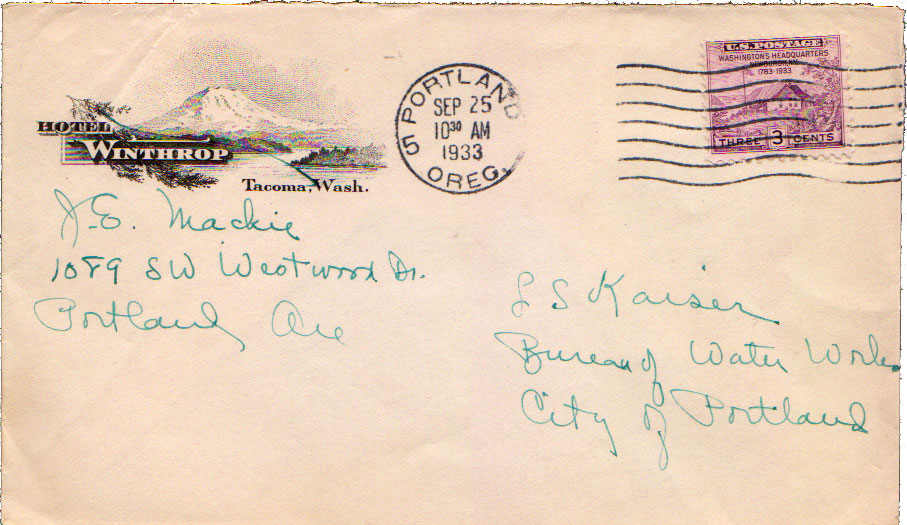 HOTEL
WINTHROP
Tacoma, Wash.
PORTLAND
SEP 25
10³⁰ AM
1933
5
OREG.
U.S. POSTAGE
WASHINGTON'S HEADQUARTERS
NEWBURGH, N.Y.
1783-1933
THREE 3 CENTS
J. E. Mackie
1089 SW Westwood Dr.
Portland, Ore
L S Kaiser
Bureau of Water Works
City of Portland